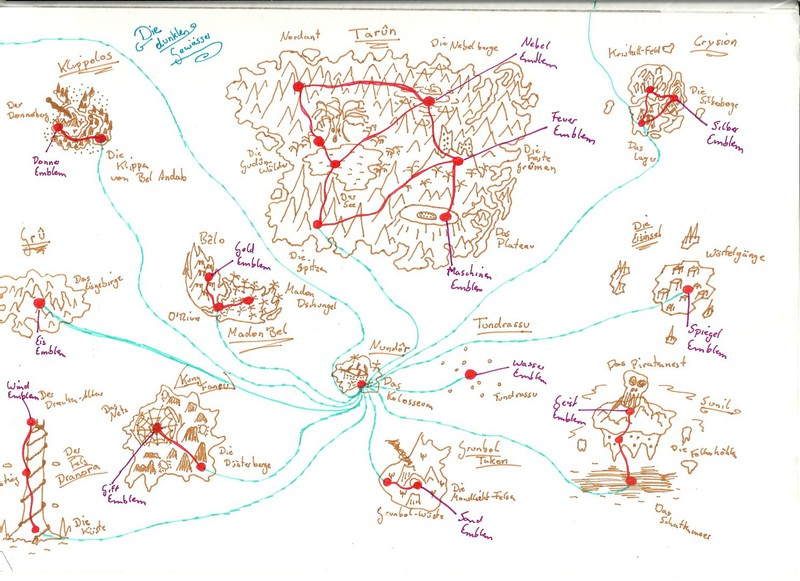 Die
dunklen
Gewässer
Klippolos
Der
Donneberg
Donner
Emblem
Die
Klippen
von Bel Andab
Tarûn
Nordant
Die Nebelberge
Nebel
Emblem
Feuer
Emblem
Die
Wälder
Der
See
Die
Spitzen
Das
Plateau
Maschinen
Emblem
Crysion
Kristall-Feld
Die
Silberberge
Silber
Emblem
Das
Lager
Grû
Das
Eisgebirge
Eis
Emblem
Bélo
Gold
Emblem
Madon
Dschungel
Madon Bel
Nundôr
Das
Kolosseum
Tundrassu
Wasser
Emblem
Tundrassu
Die
Eisinsel
Würfelgänge
Spiegel
Emblem
Das Piratennest
Sunil
Geist
Emblem
Die
Folterhöhle
Das
Schattenmeer
Wind
Emblem
Der
Fels
Dranora
Die
Küste
Das
Netz
Gift
Emblem
Die
Düsterberge
Grunbol
Tukon
Die
Mondlicht-Felsen
Grunbol-Wüste
Sand
Emblem